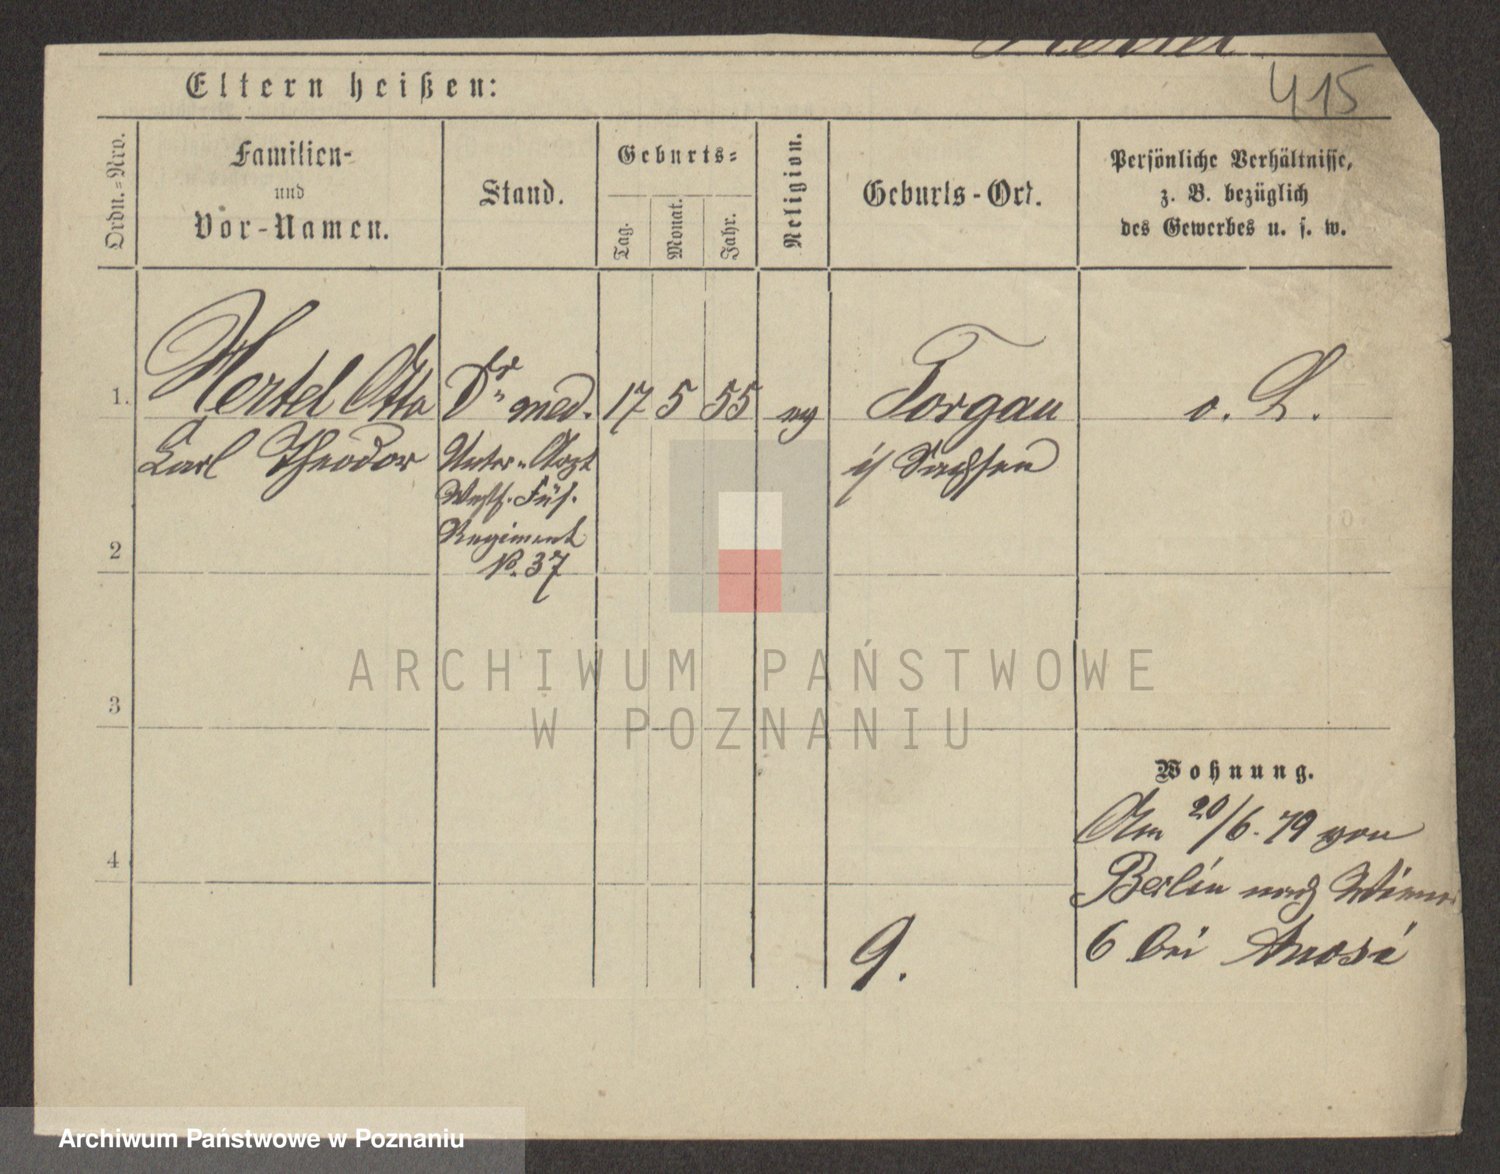 Hertel
415
Eltern heißen:
Ordn.-Nro.
Familien-
und
Vor-Namen.
Stand.
Geburts-
Tag.
Monat.
Jahr.
Religion.
Geburts-Ort.
Persönliche Verhältnisse,
z. B. bezüglich
des Gewerbes u. s. w.
1.
Hertel Otto
Carl Theodor
Dr. med.
Unter-Arzt
Westf. Füs.
Regiment
No. 37
17
5
55
ev
Torgau
i/ Sachsen
o. L.
2
3
4
Wohnung.
Am 20/6. 79 von
Berlin nach
6 bei
9.
ARCHIWUM PAŃSTWOWE
W POZNANIU
Archiwum Państwowe w Poznaniu